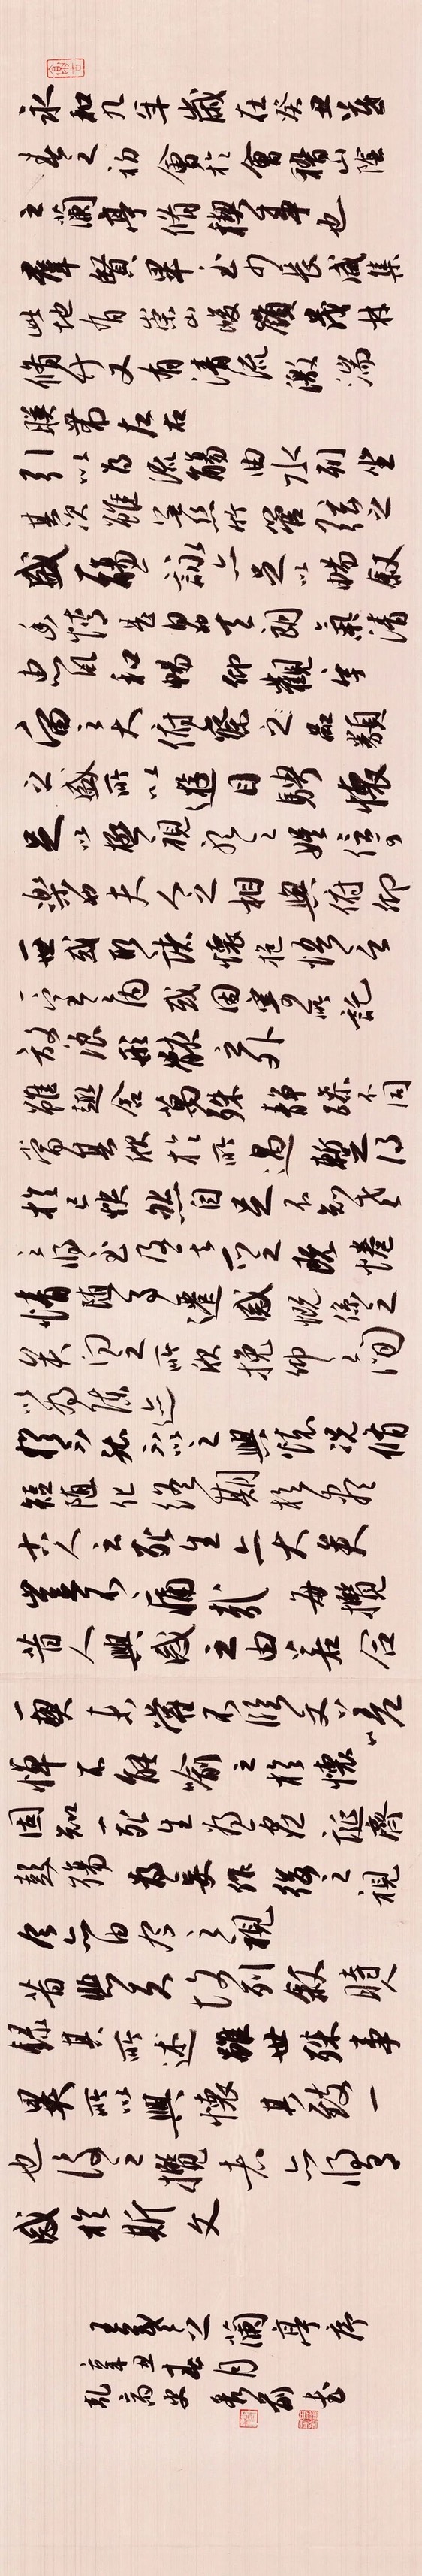 永和九年歲在癸丑暮
春之初會於會稽山陰
之蘭亭脩禊事也
群賢畢至少長咸集
此地有崇山峻領茂林
脩竹又有清流激湍
暎帶左右
引以為流觴曲水列坐
其次雖無絲竹管弦之
盛一觴一詠亦足以暢敘
幽情是日也天朗氣清
惠風和暢仰觀宇
宙之大俯察之品類
之盛所以遊目騁懷
足以極視聽之娛信可
樂也夫人之相與俯仰
一世或取諸懷抱悟言
一室之內或因寄所託
放浪形骸之外
雖趣舍萬殊靜躁不同
當其欣於所遇暫得
於己快然自足不知老
之將至及其所之既惓
情隨事遷感慨係之
矣向之所欣俛仰之間
以為陳迹
猶不能不以之興懷況脩
短隨化終期於盡
古人云死生亦大矣
豈不痛哉每攬
昔人興感之由若合
一契未嘗不臨文嗟
悼不能喻之於懷
固知一死生為虛誕齊
彭殤為妄作後之視
今亦由今之視
昔悲夫故列敘時人
錄其所述雖世殊事
異所以興懷其致一
也後之攬者亦將有
感於斯文
王羲之蘭亭序
辛丑春月
書